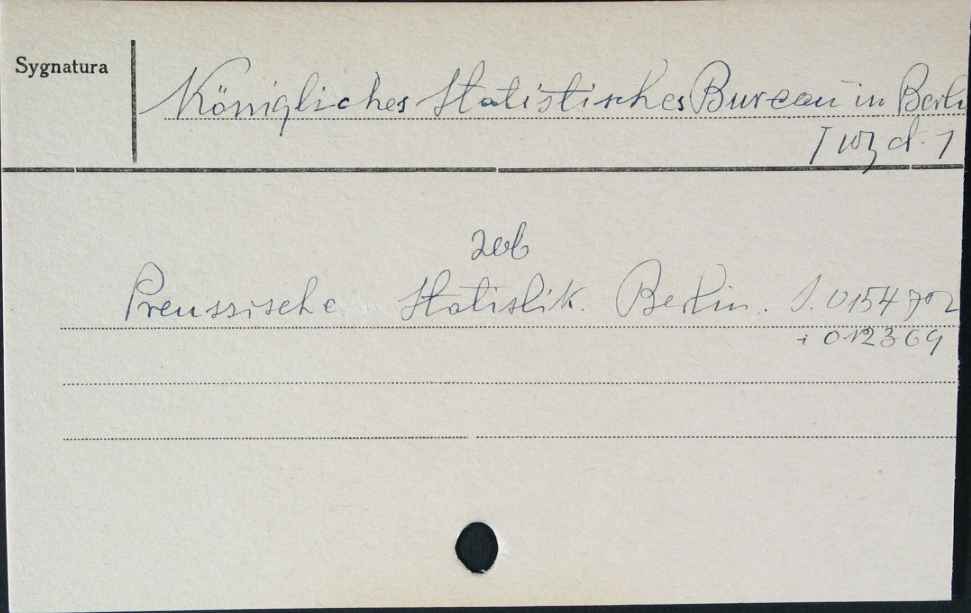 Sygnatura
Königliches Statistisches Bureau in Berli
zob
Preussische Statistik. Berlin. S. 0154702
i 012369